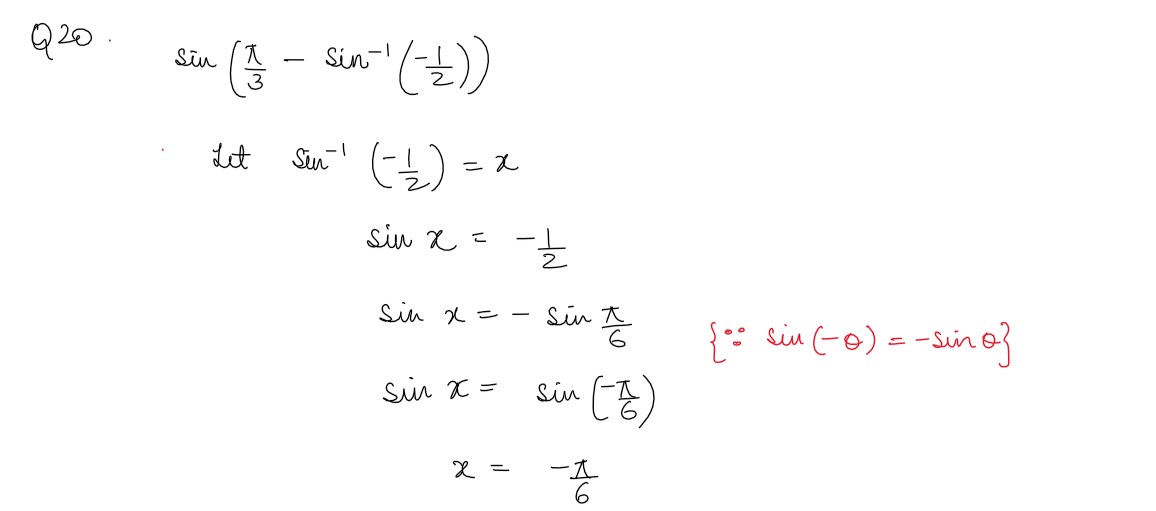 Q20.
sin (π/3 − sin⁻¹(−1/2))
Let sin⁻¹ (−1/2) = x
sin x = −1/2
sin x = − sin π/6 {∵ sin(−θ) = −sin θ}
sin x = sin (−π/6)
x = −π/6